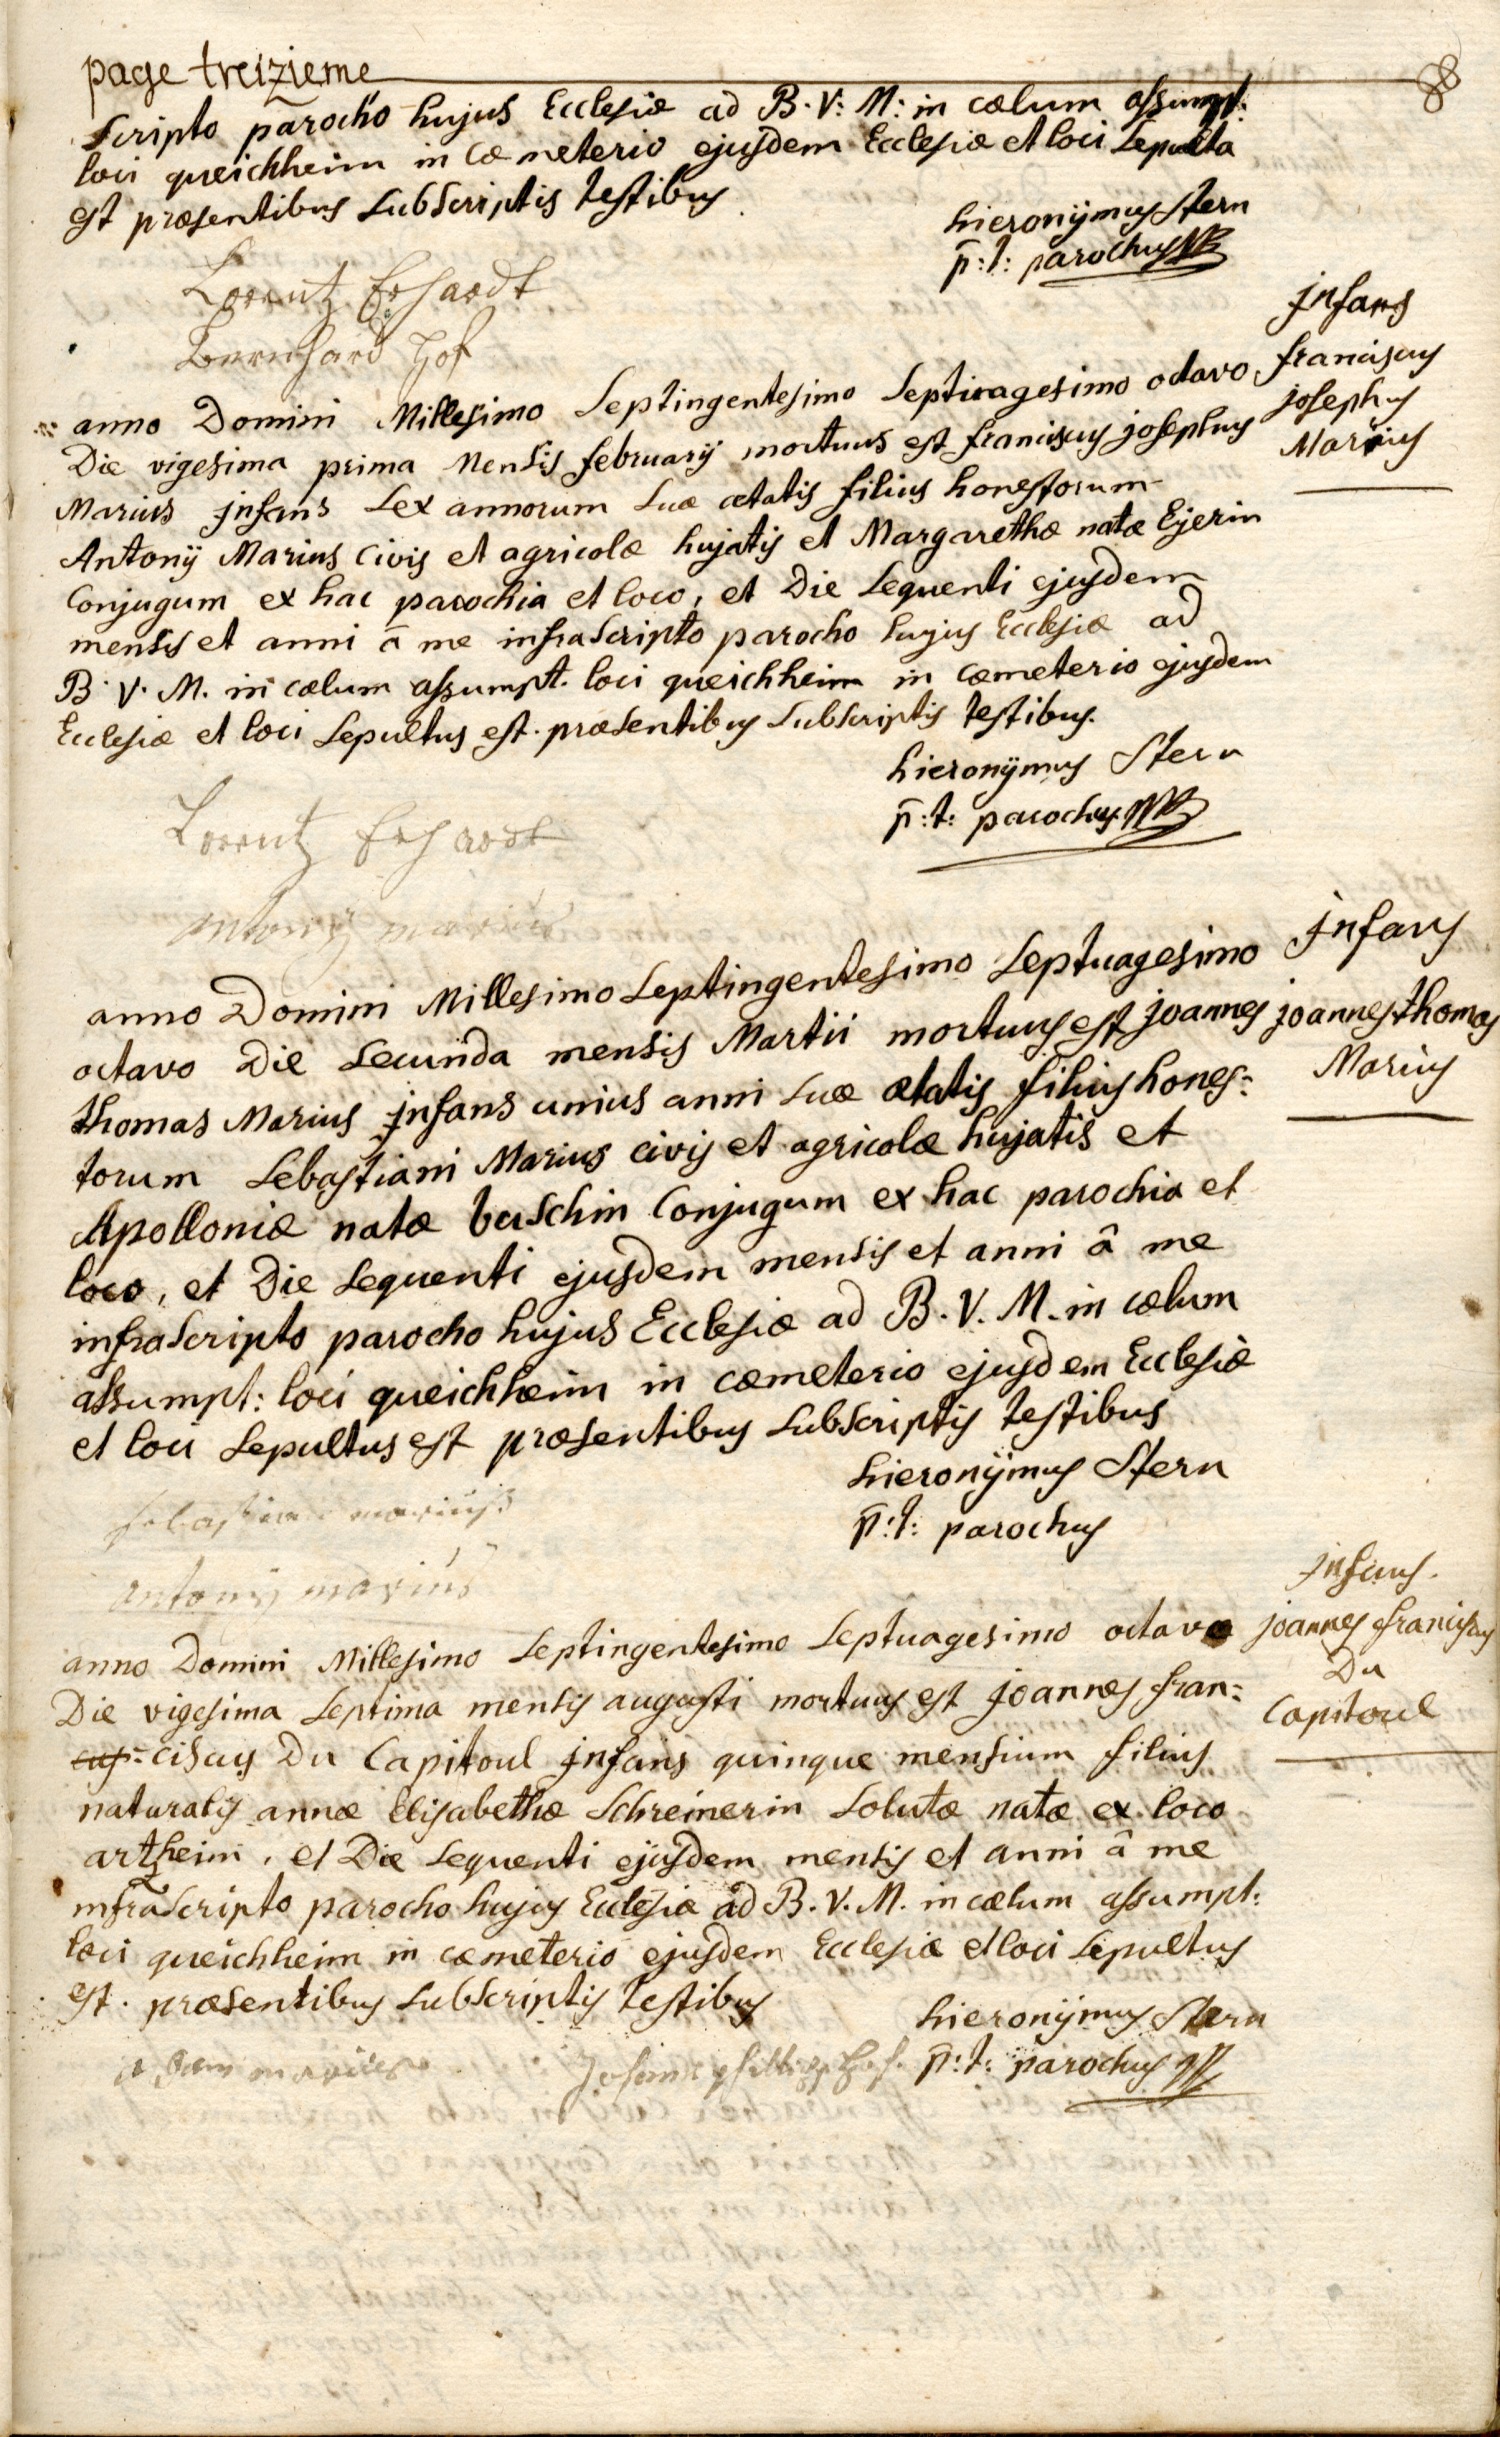 page treizieme
scripto parocho hujus Ecclesiæ ad B. V: M: in cœlum assumpt:
loci queichheim in cœmeterio ejusdem Ecclesiæ et loci sepulta
est præsentibus subscriptis testibus
hieronijmus Stern
p̄:t: parochus
Lorentz Erhardt
Bernhard Hof
infans
franciscus
josephus
Marius
anno Domini Millesimo Septingentesimo Septuagesimo octavo
Die vigesima prima Mensis februarij mortuus est franciscus josephus
Marius jnfans sex annorum suæ ætatis filius honestorum
Antonij Marius civis et agricolæ hujatis et Margarethæ natæ Ejerin
Conjugum ex hac parochia et loco, et Die sequenti ejusdem
mensis et anni â me infrascripto parocho hujus Ecclesiæ ad
B. V. M. in cœlum assumpt. loci queichheim in cœmeterio ejusdem
Ecclesiæ et loci sepultus est. præsentibus subscriptis testibus.
hieronijmus Stern
p̄:t: parochus
Lorentz Erhardt
antonÿ mariús
jnfans
joannes thomas
Marius
anno Domini Millesimo Septingentesimo Septuagesimo
octavo Die secunda mensis Martii mortuus est joannes
thomas Marius jnfans unius anni suæ ætatis filius hones:
torum Sebastiani Marius civis et agricolæ hujatis et
Apolloniæ natæ buschin Conjugum ex hac parochia et
loco, et Die sequenti ejusdem mensis et anni â me
infrascripto parocho hujus Ecclesiæ ad B. V. M. in cœlum
assumpt: loci queichheim in cœmeterio ejusdem Ecclesiæ
et loci sepultus est præsentibus subscriptis testibus
hieronijmus Stern
p̄:t: parochus
sebastian mariuss
antonÿ mariús
jnfans.
joannes franciscus
Du
Capitoul
anno Domini Millesimo Septingentesimo Septuagesimo octavo
Die vigesima septima mensis augusti mortuus est joannes fran:
ciscus Du Capitoul jnfans quinque mensium filius
naturalis annæ Elisabethæ Schreinerin solutæ natæ ex loco
artzheim, et Die sequenti ejusdem mensis et anni â me
infrascripto parocho hujus Ecclesiæ ad B. V. M. in cœlum assumpt:
loci queichheim in cœmeterio ejusdem Ecclesiæ et loci sepultus
est. præsentibus subscriptis testibus
hieronijmus Stern
p̄:t: parochus
adam marius
Johann philipp Hof.